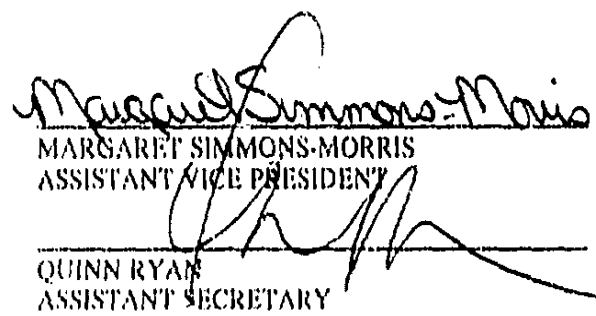 Margaret Simmons-Morris
MARGARET SIMMONS-MORRIS
ASSISTANT VICE PRESIDENT
QUINN RYAN
ASSISTANT SECRETARY